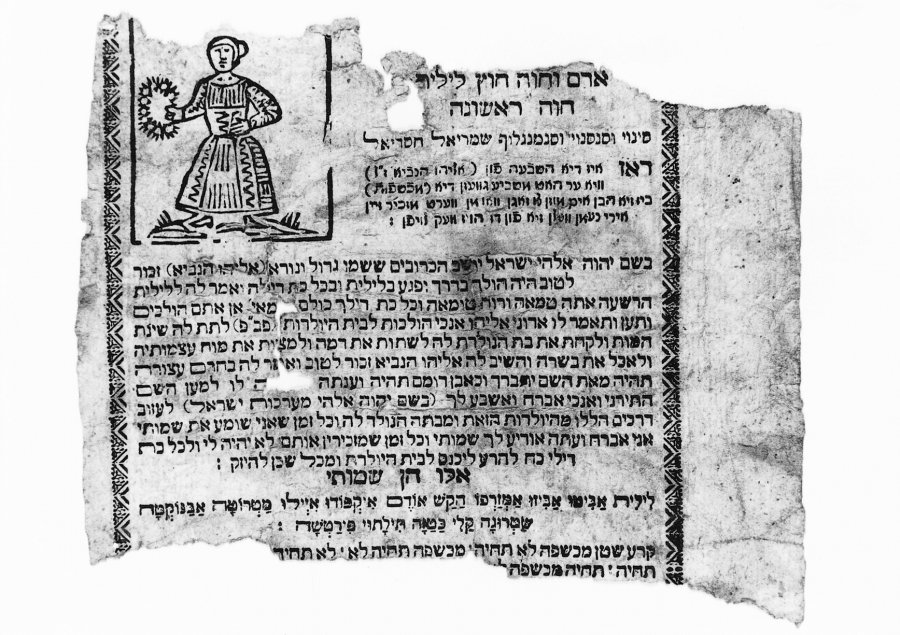 אדם וחוה חוץ לילית
חוה ראשונה
סינוי וסנסנוי וסנמנגלוף שמריאל חסדיאל
דאז איז דיא השבעה פון (אליהו הנביא ז"ל)
וויא ער האט משביע גוועזן דיא (מכשפות)
בשם יהוה אלהי ישראל יושב הכרובים ששמו גדול ונורא (אליהו הנביא) זכור
לטוב היה הולך בדרך ויפגע בלילית ובכל כת דילה ויאמר לה ללילית
הרשעה אתה טמאה ורוח טומאה וכל כת דילך כולם טמאי' אן אתם הולכים
ותען ותאמר לו אדוני אליהו אנכי הולכת לבית היולדת (פב"פ) לתת לה שינת
המות ולקחת את בת הנולדת לה לשתות את דמה ולמצוץ את מוח עצמותיה
ולאכל את בשרה והשיב לה אליהו הנביא זכור לטוב ואמר לה בחרם עצורה
תהיה מאת השם יתברך וכאבן דומם תהיה וענתה לו למען השם
התירני ואנכי אברח ואשבע לך (בשם יקוה אלהי מערכות ישראל) לעזוב
דרכים הללו מהיולדות הזאת ומבתה הנולד לה וכל זמן שאני שומע את שמותי
אני אברח ועתה אודיע לך שמותי וכל זמן שמזכירין אותם לא יהיה לי ולכל כת
דילי כח להרע ליכנס לבית היולדת ומכל שכן להיזק :
אלו הן שמותי
לילית אביטו אביזו אמזרפו הקש אודם איקפודו איילו מטרוטה אבנוקטה
שטרונה קלי כטאה תילתוי פירטשה :
קרע שטן מכשפה לא תחיה' מכשפה תחיה לא' לא תחיה
תחיה' תחיה מכשפה